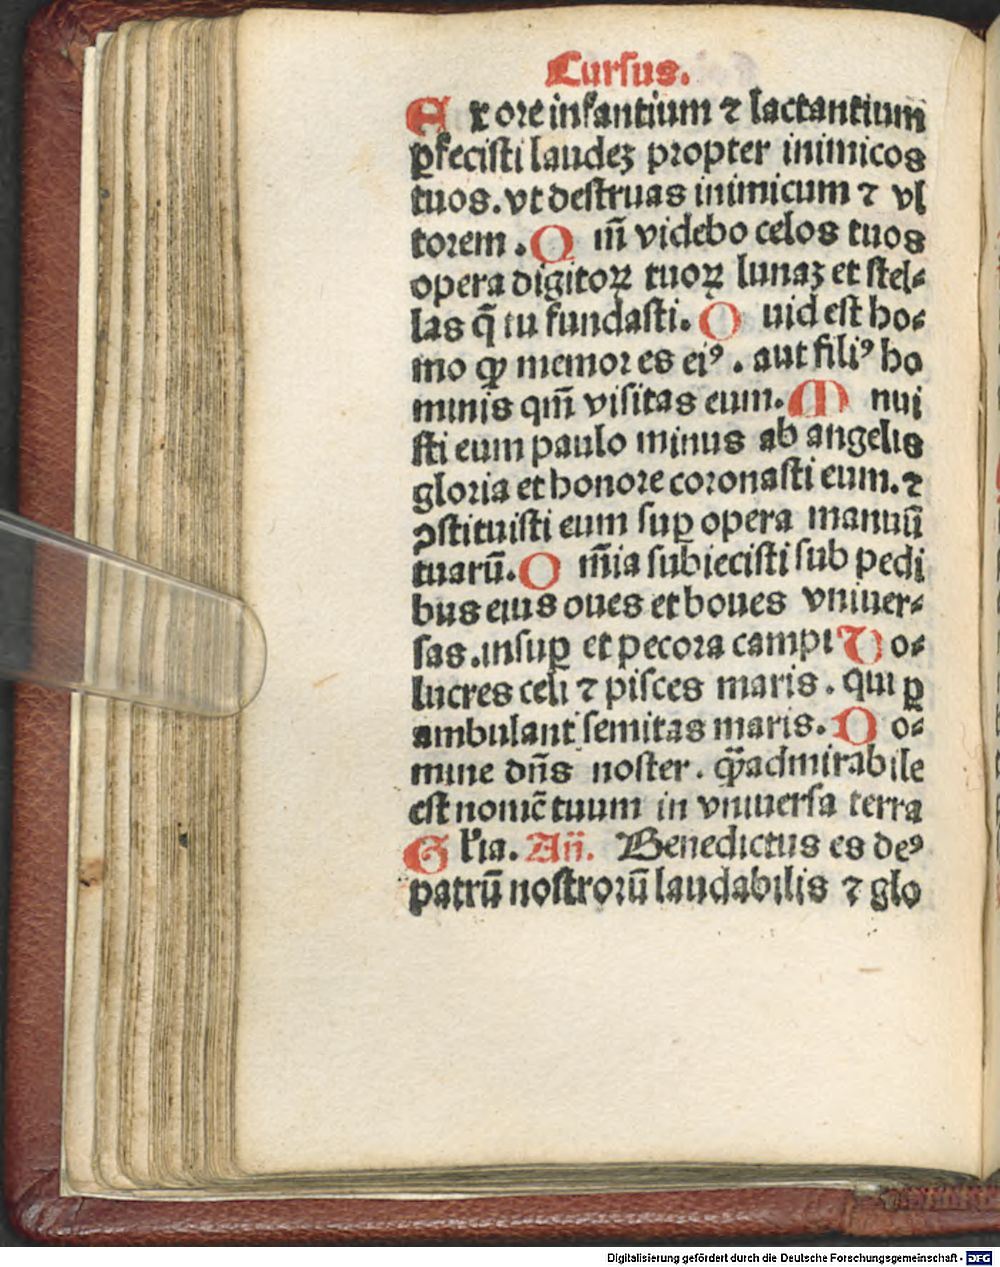 Cursus.
Ex ore infantium ⁊ lactantium
ꝑfecisti laudeꝫ propter inimicos
tuos. vt destruas inimicum ⁊ vl
torem. Qm̄ videbo celos tuos
opera digitoꝝ tuoꝝ lunaꝫ et stel⸗
las q̄ tu fundasti. Quid est ho⸗
mo ꝙ memor es eiꝰ. aut filiꝰ ho
minis qm̄ visitas eum. Minui
sti eum paulo minus ab angelis
gloria et honore coronasti eum. ⁊
ꝯstituisti eum suꝑ opera manuū
tuarū. Om̄ia subiecisti sub pedi
bus eius oues et boues vniuer⸗
sas. insuꝑ et pecora campi Vo⸗
lucres celi ⁊ pisces maris. qui ꝑ
ambulant semitas maris. Do⸗
mine dn̄s noster. ꝙ̄ admirabile
est nomē tuum in vniuersa terra
Gl'ia. An̄. Benedictus es deꝰ
patrū nostrorū laudabilis ⁊ glo
Digitalisierung gefördert durch die Deutsche Forschungsgemeinschaft - DFG